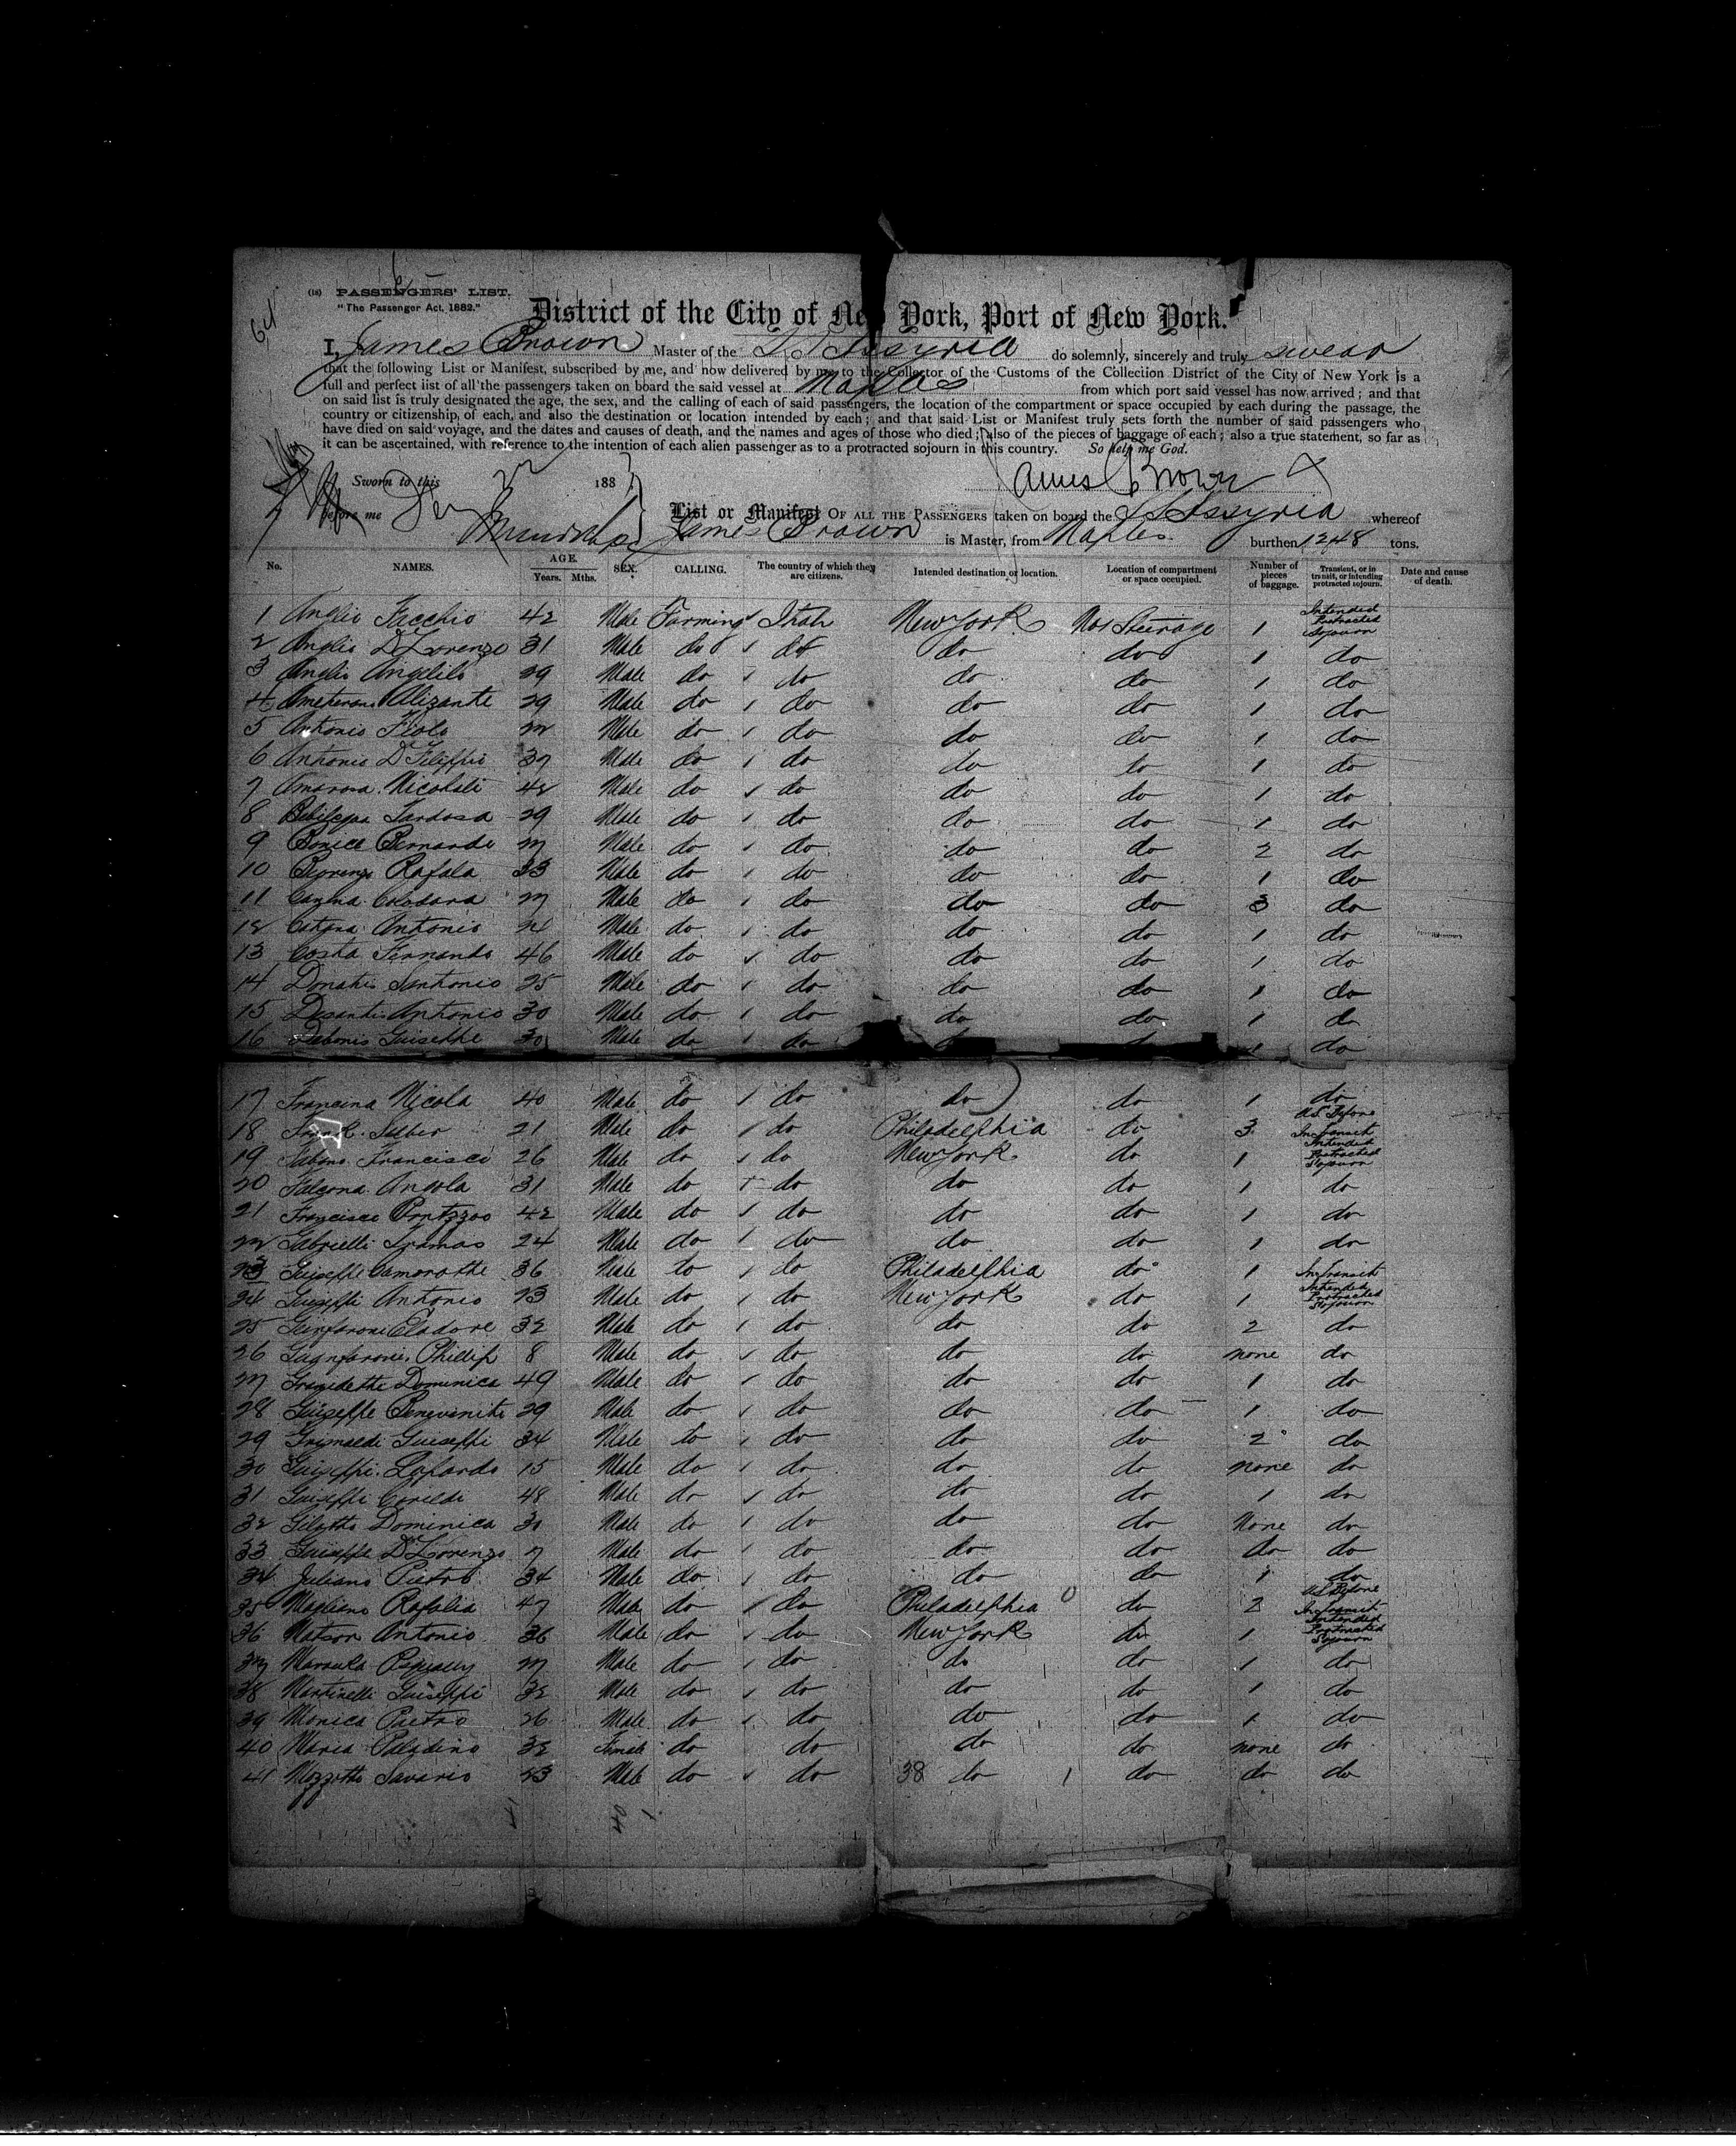 6
(18) PASSENGERS' LIST.
"The Passenger Act, 1882."
641
District of the City of New York, Port of New York.
I, James Brown Master of the SS Assyria do solemnly, sincerely and truly swear
that the following List or Manifest, subscribed by me, and now delivered by me to the Collector of the Customs of the Collection District of the City of New York is a
full and perfect list of all the passengers taken on board the said vessel at Naples from which port said vessel has now arrived; and that
on said list is truly designated the age, the sex, and the calling of each of said passengers, the location of the compartment or space occupied by each during the passage, the
country or citizenship, of each, and also the destination or location intended by each; and that said List or Manifest truly sets forth the number of said passengers who
have died on said voyage, and the dates and causes of death, and the names and ages of those who died; also of the pieces of baggage of each; also a true statement, so far as
it can be ascertained, with reference to the intention of each alien passenger as to a protracted sojourn in this country. So help me God.
Sworn to this 188
James Brown
before me
List or Manifest OF ALL THE PASSENGERS taken on board the SS Assyria whereof
James Brown is Master, from Naples burthen 1248 tons.
No. NAMES. AGE. Years. Mths. SEX. CALLING. The country of which they are citizens. Intended destination or location. Location of compartment or space occupied. Number of pieces of baggage. Transient, or in transit, or intending protracted sojourn. Date and cause of death.
1 Anglio Facchio 42 Male Farming Italy New York Steerage 1 Intended Protracted Sojourn
2 Anglio D'Lorenzo 31 Male do do do do 1 do
3 Anglio Angelilo 29 Male do do do do 1 do
4 Alizante 29 Male do do do do 1 do
5 Antonio Fiolo 22 Male do do do do 1 do
6 Antonio D'Filippio 37 Male do do do do 1 do
7 Amarosa Nicolati 42 Male do do do do 1 do
8 Tardosa 29 Male do do do do 1 do
9 Bonice Bernardo 27 Male do do do do 2 do
10 Rafala 33 Male do do do do 1 do
11 Colodara 27 Male do do do do 3 do
12 Catana Antonio 24 Male do do do do 1 do
13 Costa Fernando 46 Male do do do do 1 do
14 Donato Santonio 25 Male do do do do 1 do
15 Desanti Antonio 30 Male do do do do 1 do
16 Debonis Guiseppe 30 Male do do do 1 do
17 Francina Nicola 40 Male do do do do 1 do
18 21 Male do do Philadelphia do 3 as Before In Transit
19 Fabano Francisco 26 Male do do New York do 1 Intended Protracted Sojourn
20 Falcona Angola 31 Male do do do do 1 do
21 Francisco 42 Male do do do do 1 do
22 Gabrielli Tramas 24 Male do do do do 1 do
23 Guiseppe Camorotte 36 Male do do Philadelphia do 1 In Transit
24 Guiseppi Antonio 23 Male do do New York do 1 Intended Protracted Sojourn
25 Eladore 32 Male do do do do 2 do
26 Phillip 8 Male do do do do none do
27 Dominica 49 Male do do do do 1 do
28 Guiseppe Benevinite 29 Male do do do do 1 do
29 Grimaldi Guiseppi 34 Male do do do do 2 do
30 Guiseppi Lofardo 15 Male do do do do none do
31 Guiseppi 48 Male do do do do 1 do
32 Dominica 30 Male do do do do None do
33 Guiseppe D'Lorenzo 7 Male do do do do do do
34 Juliano Pietro 34 Male do do do do 1 do
35 Magliano Rafalia 47 Male do do Philadelphia do 2 as Before In Transit
36 Matson Antonio 36 Male do do New York do 1 Intended Protracted Sojourn
37 27 Male do do do do 1 do
38 Martinelli Guiseppi 32 Male do do do do 1 do
39 Monica Pietro 26 Male do do do do 1 do
40 Maria Paladino 32 Female do do do do none do
41 Mozzotto Savario 23 Male do do 38 do 1 do do do